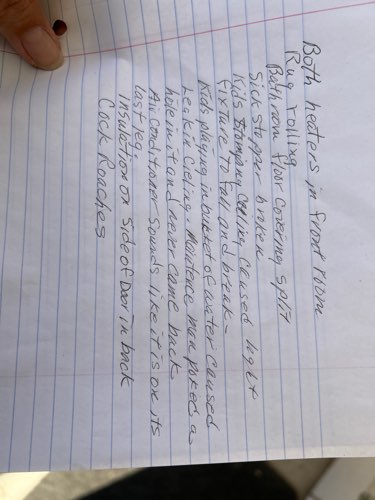 Both heaters in front room
Rug rolling
Bathroom floor covering split
Sick stopper broken
Kids Stomping Ceiling caused light
fixture to fall and break.
Kids playing in bucket of water caused
Leak in Cieling. Maintence man poked a
hole in it and never came back.
Air conditioner sounds like it is on its
last leg.
Insulation on side of Door in back
Cock Roaches